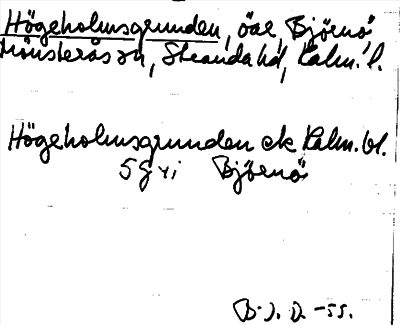 Högeholmsgrunden, öar, Björnö,
Mönsterås sn, Stranda hd, Kalm. l.
Högeholmsgrunden ek Kalm. bl.
5g vi Björnö
B. J. D. -55.